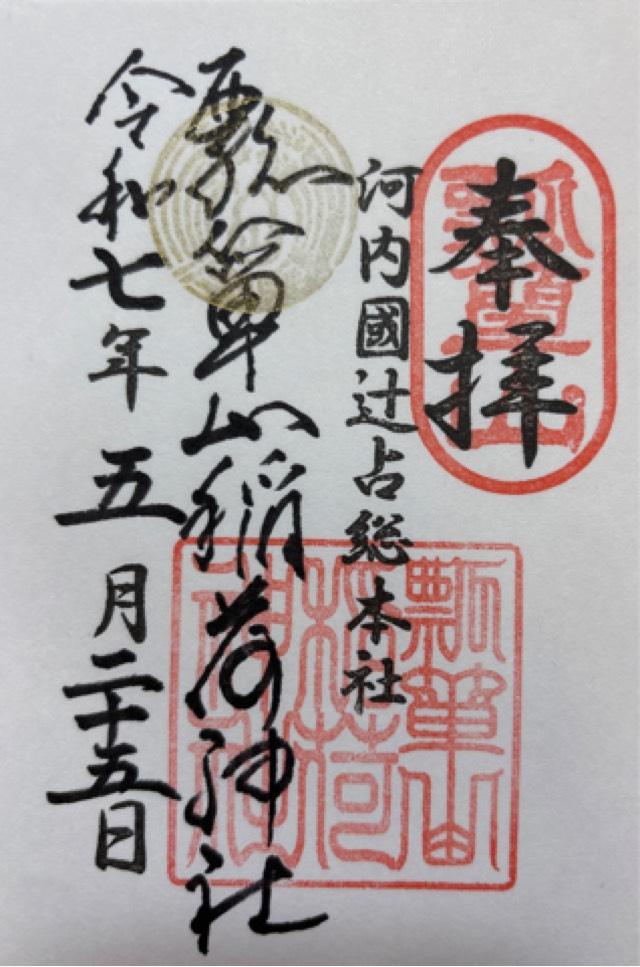 奉拝
河内國辻占総本社
瓢箪山稲荷神社
令和七年五月二十五日
瓢箪山
瓢箪山
稲荷
神社